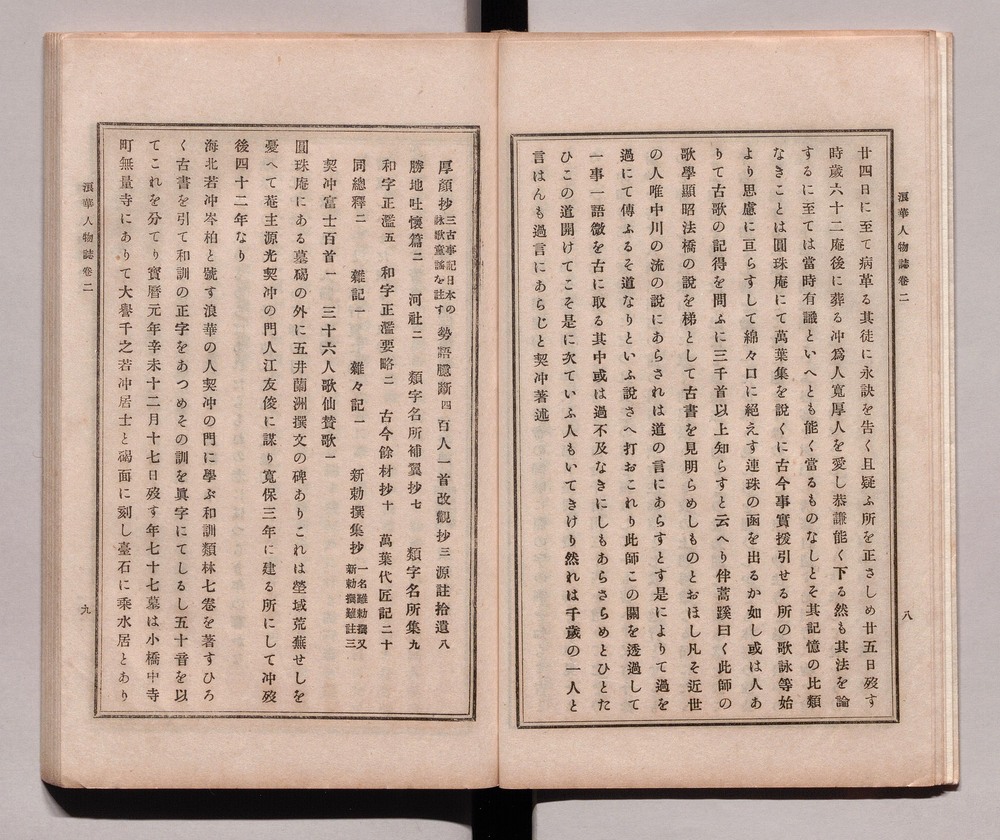 浪華人物誌卷二
八
廿四日に至て病革る其徒に永訣を告く且疑ふ所を正さしめ廿五日歿す
時歳六十二庵後に葬る冲爲人寬厚人を愛し恭謙能く下る然も其法を論
するに至ては當時有識といへとも能く當るものなしとそ其記憶の比類
なきことは圓珠庵にて萬葉集を說くに古今事實援引せる所の歌詠等始
より思慮に亘らすして綿々口に絕えす連珠の函を出るか如し或は人あ
りて古歌の記得を問ふに三千首以上知らすと云へり伴蒿蹊曰く此師の
歌學顯昭法橋の說を梯として古書を見明らめしものとおほし凡そ近世
の人唯中川の流の說にあらされは道の言にあらすとす是によりて過を
過にて傳ふるそ道なりといふ說さへ打おこれり此師この關を透過して
一事一語徵を古に取る其中或は過不及なきにしもあらさらめとひとた
ひこの道開けてこそ是に次ていふ人もいてきけり然れは千歲の一人と
言はんも過言にあらじと契冲著述
厚顏抄三古事記日本の詠歌童謠を註す 勢語臆斷四 百人一首改觀抄三 源註拾遺八
勝地吐懷篇二 河社二 類字名所補翼抄七 類字名所集九
和字正濫五 和字正濫要略二 古今餘材抄十 萬葉代匠記二十
同總釋二 雜記一 雜々記一 新勅撰集抄一名難勅撰又新勅撰難註三
契冲富士百首一 三十六人歌仙賛歌一
圓珠庵にある墓碣の外に五井蘭洲撰文の碑ありこれは塋域荒蕪せしを
憂へて菴主源光契冲の門人江友俊に謀り寬保三年に建る所にして冲歿
後四十二年なり
海北若冲岑柏と號す浪華の人契冲の門に學ふ和訓類林七卷を著すひろ
く古書を引て和訓の正字をあつめその訓を眞字にてしるし五十音を以
てこれを分てり寶曆元年辛未十二月十七日歿す年七十七墓は小橋中寺
町無量寺にありて大譽千之若冲居士と碣面に刻し臺石に乘水居とあり
浪華人物誌卷二
九